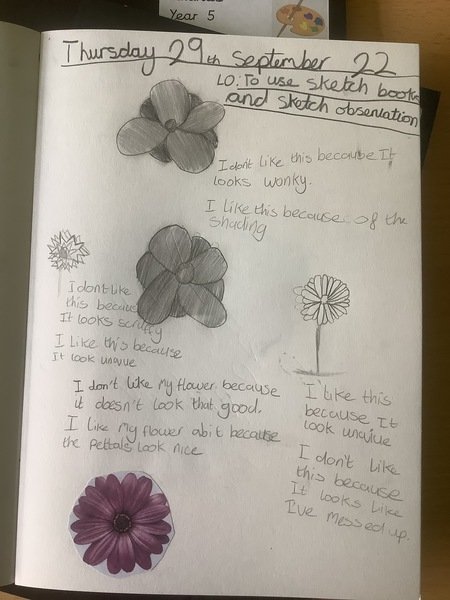 Year 5
Thursday 29th September 22
LO: To use sketch books
and sketch observation
I don't like this because It
looks wonky.
I like this because of the
shading
I dont like
this because
It looks scruffy
I Like this because
It look unuiue
I don't like my flower because
it doesn't look that good.
I like my flower abit because
the pettals look nice
I like this
because It
look unuiue
I don't like
this because
It looks like
I've messed up.